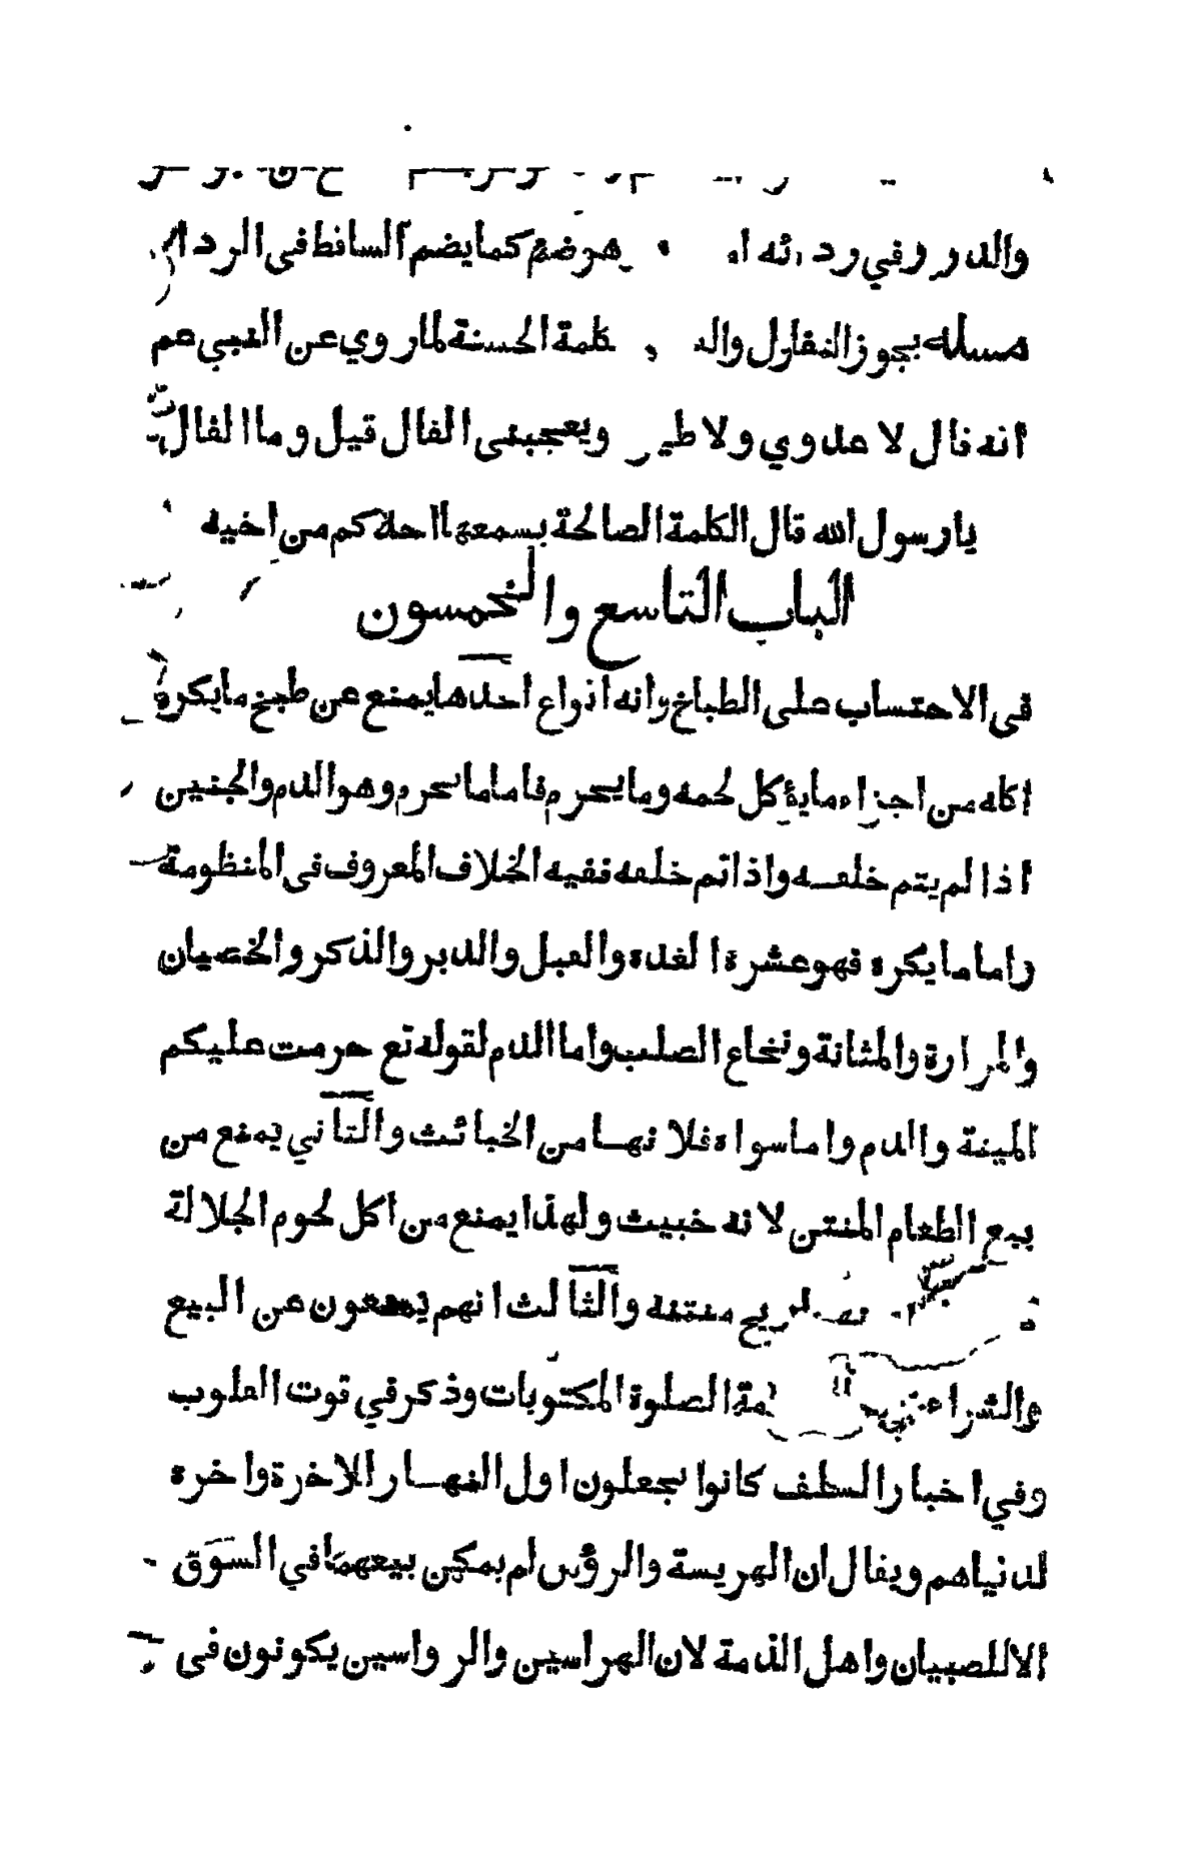 والدر وفي رد ئه هو ضم كما يضم الساقط في الردا
مسئله يجوز التفاول كلمة الحسنة لما روي عن النبي عم
انه قال لا عدوي ولا طير ويعجبني الفال قيل وما الفال
يا رسول الله قال الكلمة الصالحة يسمعها احدكم من اخيه
الباب التاسع والخمسون
في الاحتساب على الطباخ وانه انواع احدها يمنع عن طبخ ما يكره
اكله من اجزاء ما يؤكل لحمه وما يحرم فاما ما يحرم وهو الدم والجنين
اذا لم يتم خلقه واذا تم خلقه ففيه الخلاف المعروف في المنظومة
واما ما يكره فهو عشرة الغدة والقبل والدبر والذكر والخصيان
والمرارة والمثانة ونخاع الصلب واما الدم لقوله تع حرمت عليكم
الميتة والدم واما سواه فلا نها من الخبائث والثاني يمنع من
بيع الطعام المنتن لانه خبيث ولهذا يمنع من اكل لحوم الجلالة
ريح منتنه والثالث انهم يمنعون عن البيع
والشراء الصلوة المكتوبات وذكر في قوت القلوب
وفي اخبار السلف كانوا يجعلون اول النهار للاخرة واخره
لدنياهم ويقال ان الهريسة والرؤس لم يمكن بيعهما في السوق
الا للصبيان واهل الذمة لان الهراسين والرواسين يكونون في